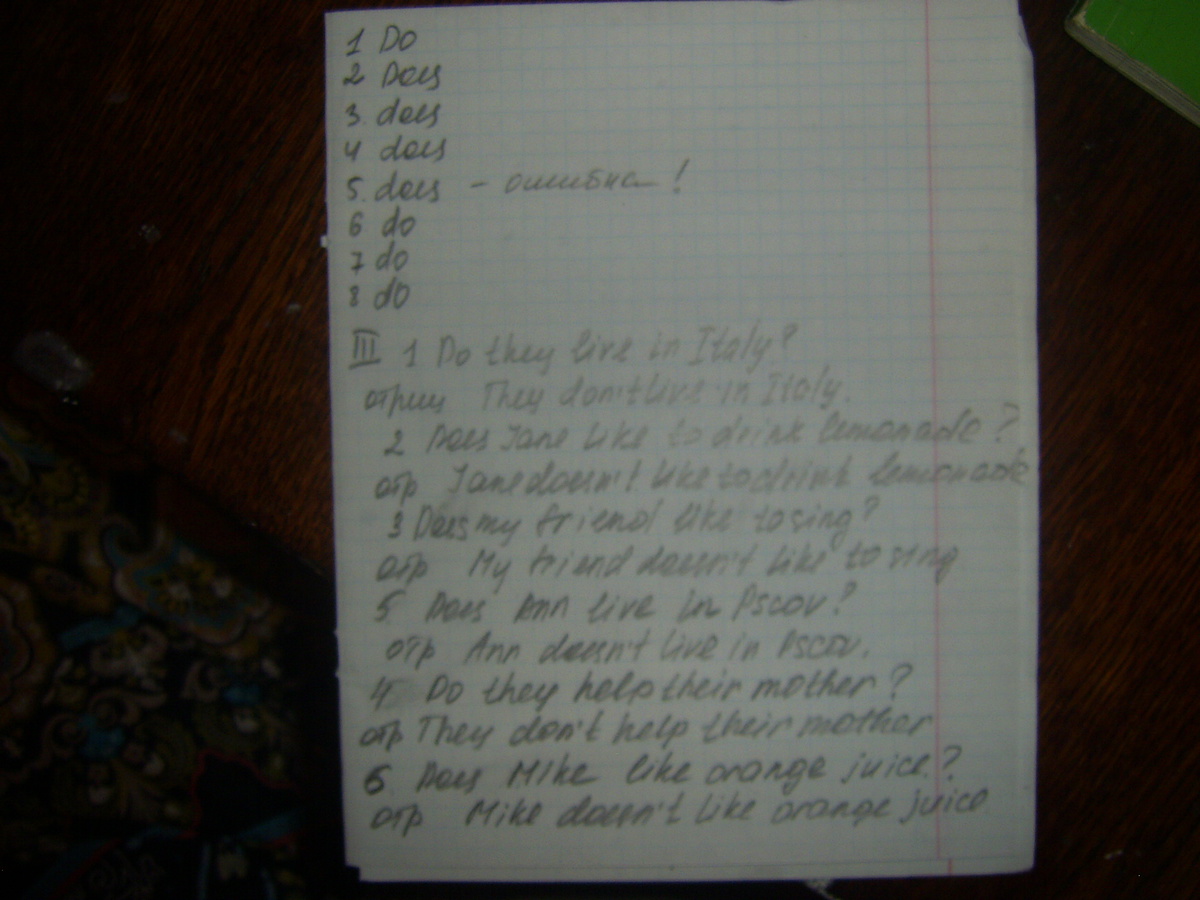 1 Do
2 Does
3. does
4 does
5. does - ошибка !
6 do
7 do
8 do
III 1 Do they live in Italy?
отриц They don't live in Italy.
2 Does Jane like to drink lemonade ?
отр Jane doesn't like to drink lemonade
3 Does my friend like to sing?
отр My friend doesn't like to sing
5 Does Ann live in Pscov?
отр Ann doesn't live in Pscov.
4 Do they help their mother?
отр They don't help their mother
6 Does Mike like orange juice?
отр Mike doesn't like orange juice